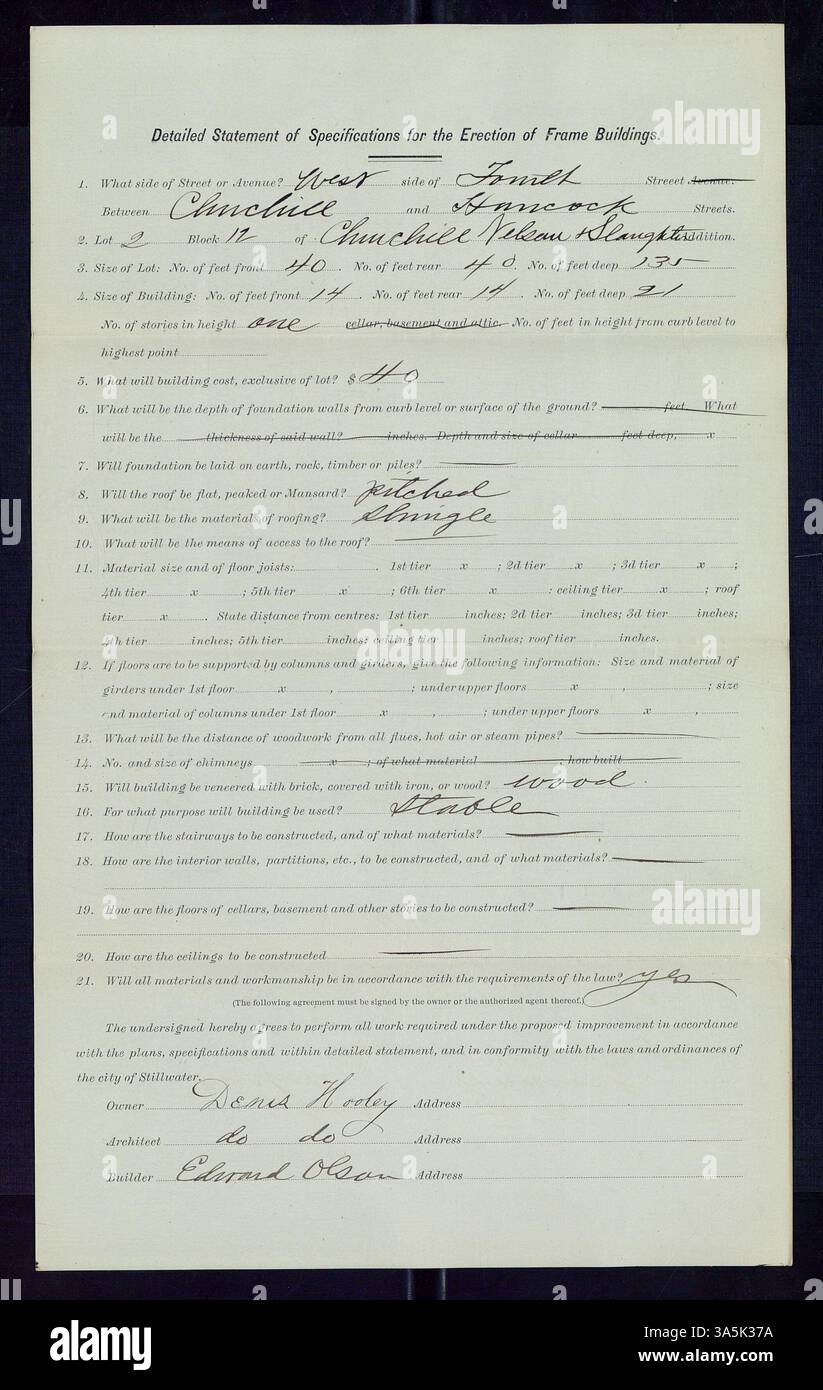 Detailed Statement of Specifications for the Erection of Frame Buildings.
1. What side of Street or Avenue? West side of Fourth Streeet Avenue.
Between Churchill and Hancock Streets.
2. Lot 2 Block 12 of Churchill Nelson & Slaughters Addition.
3. Size of Lot: No. of feet front 40. No. of feet rear 40. No. of feet deep 135
4. Size of Building: No. of feet front 14. No. of feet rear 14. No. of feet deep 21
No. of stories in height one cellar, basement and attic. No. of feet in height from curb level to
highest point
5. What will building cost, exclusive of lot? $ 40
6. What will be the depth of foundation walls from curb level or surface of the ground? feet. What
will be the thickness of said wall? inches. Depth and size of cellar feet deep, x
7. Will foundation be laid on earth, rock, timber or piles?
8. Will the roof be flat, peaked or Mansard? pitched
9. What will be the material of roofing? Shingle
10. What will be the means of access to the roof?
11. Material size and of floor joists: . 1st tier x ; 2d tier x ; 3d tier x ;
4th tier x ; 5th tier x ; 6th tier x : ceiling tier x ; roof
tier x . State distance from centres: 1st tier inches; 2d tier inches; 3d tier inches;
4th tier inches; 5th tier inches; ceiling tier inches; roof tier inches.
12. If floors are to be supported by columns and girders, give the following information: Size and material of
girders under 1st floor x , ; under upper floors x , ; size
and material of columns under 1st floor x , ; under upper floors x ,
13. What will be the distance of woodwork from all flues, hot air or steam pipes?
14. No. and size of chimneys x ; of what material ; how built
15. Will building be veneered with brick, covered with iron, or wood? wood.
16. For what purpose will building be used? Stable
17. How are the stairways to be constructed, and of what materials?
18. How are the interior walls, partitions, etc., to be constructed, and of what materials?
19. How are the floors of cellars, basement and other stories to be constructed?
20. How are the ceilings to be constructed
21. Will all materials and workmanship be in accordance with the requirements of the law? yes
(The following agreement must be signed by the owner or the authorized agent thereof.)
The undersigned hereby agrees to perform all work required under the proposed improvement in accordance
with the plans, specifications and within detailed statement, and in conformity with the laws and ordinances of
the city of Stillwater.
Owner Denis Hooley Address
Architect do do Address
Builder Edward Olson Address
alamy
alamy
alamy
a
a
a
a
alamy
Image ID: 3A5K37A
www.alamy.com